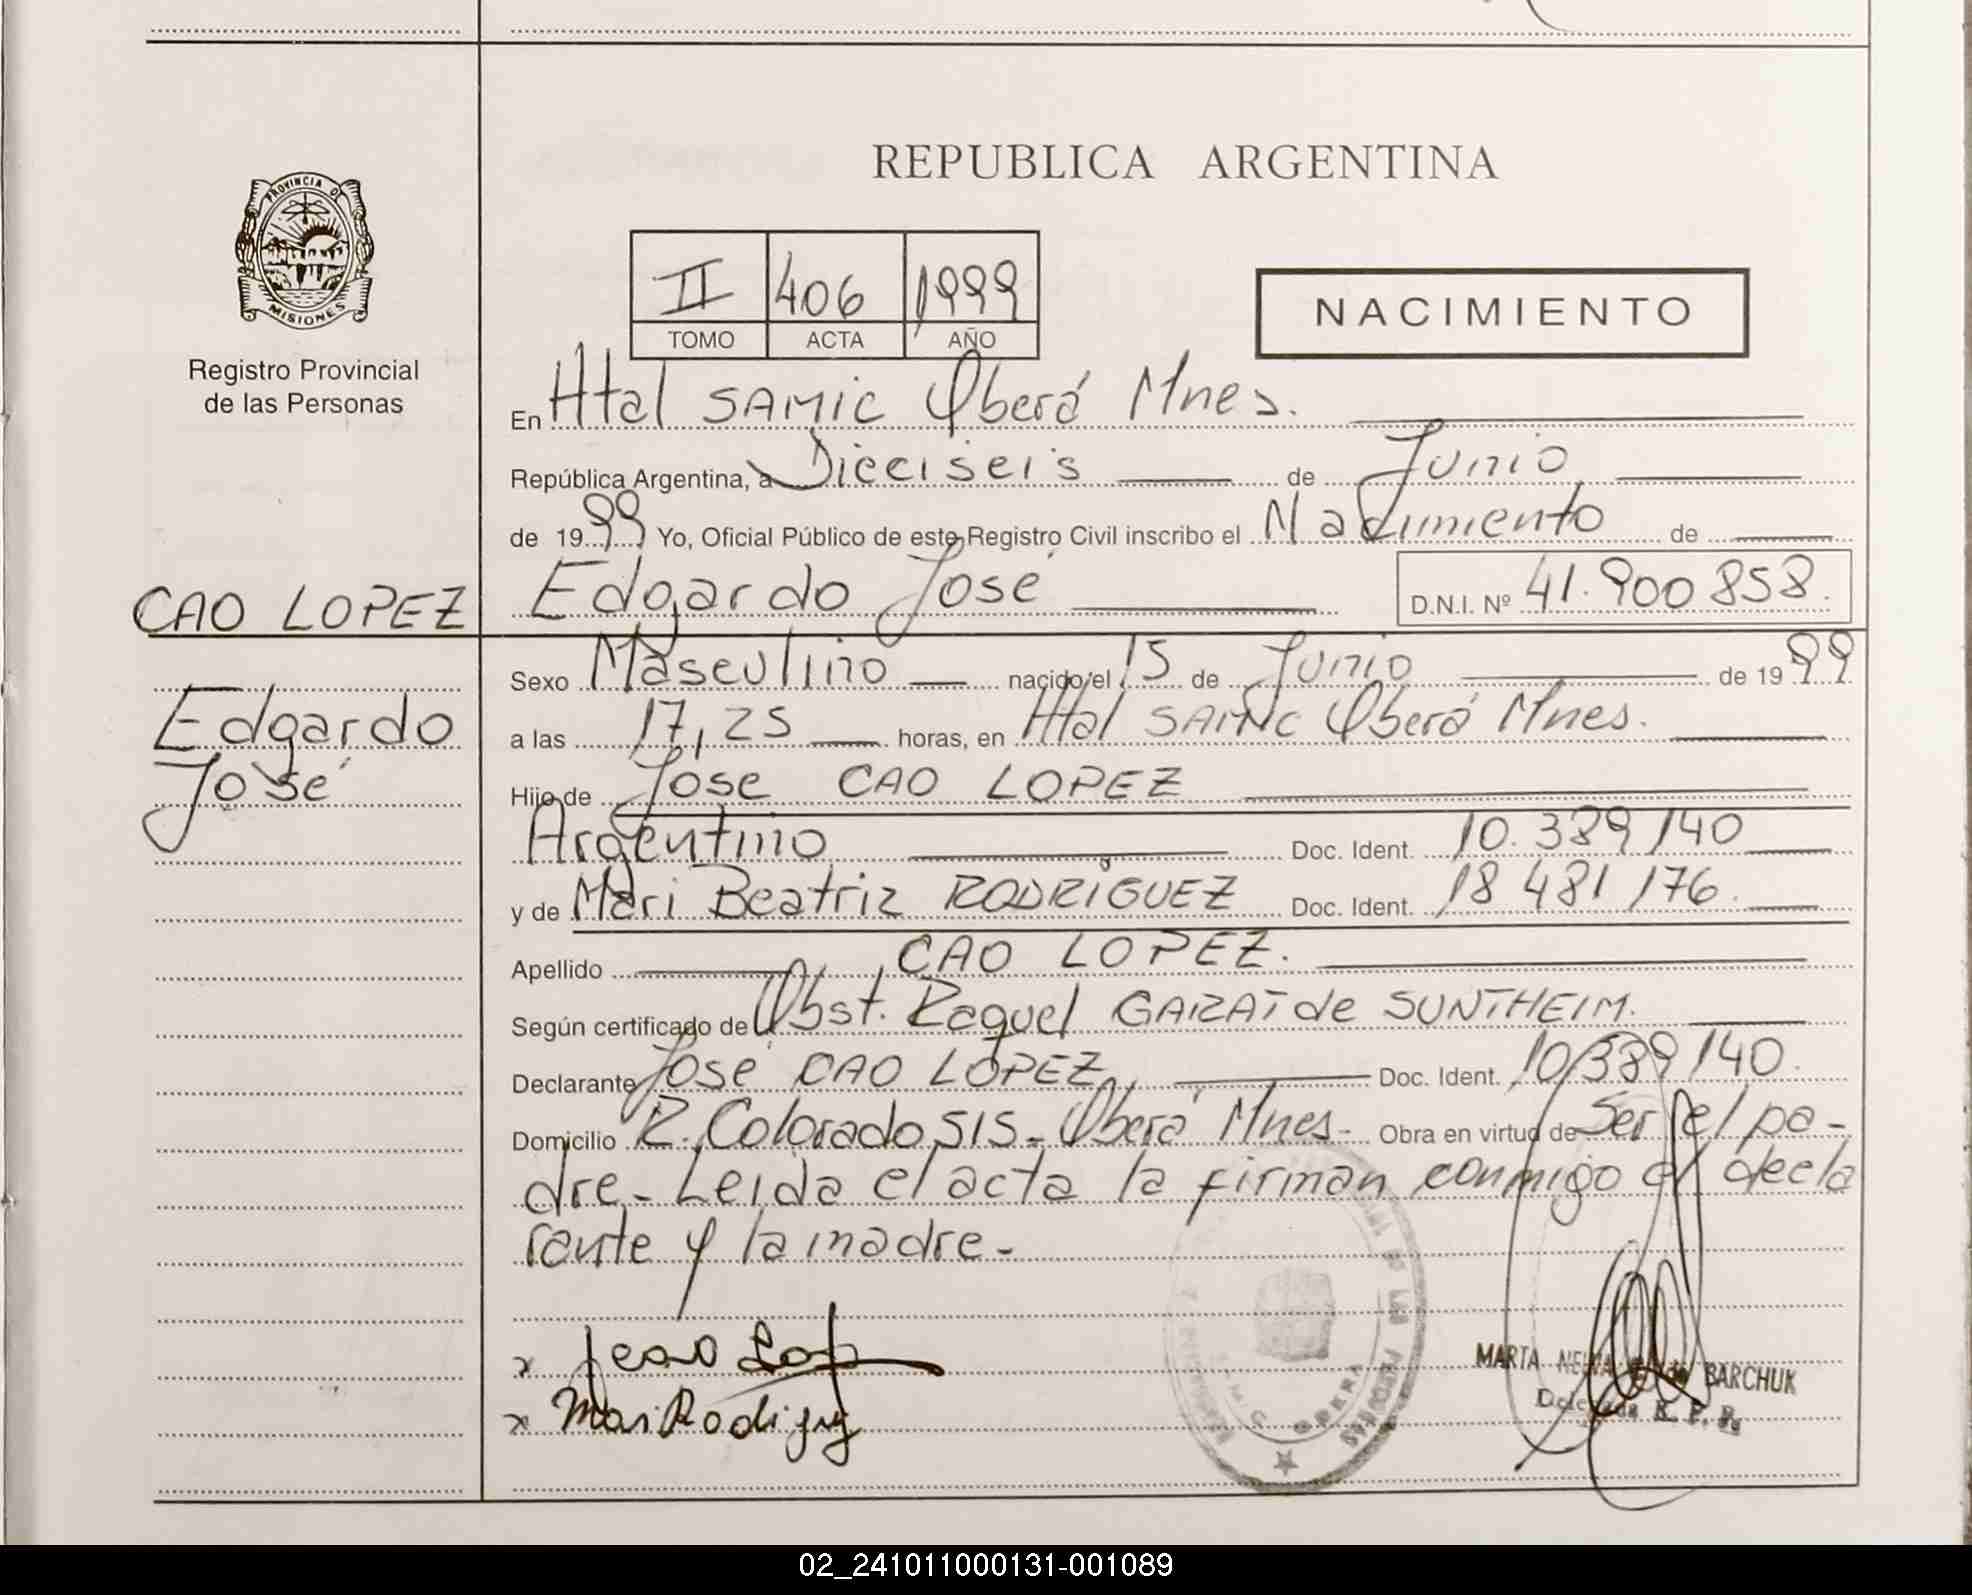 REPUBLICA ARGENTINA
PROVINCIA DE
MISIONES
Registro Provincial
de las Personas
II 406 1999
TOMO ACTA AÑO
NACIMIENTO
En Htal SAMIC Oberá Mnes.
República Argentina, a Dieciseis de Junio
de 1999 Yo, Oficial Público de este Registro Civil inscribo el Nacimiento de
CAO LOPEZ
Edgardo José
Edgardo José D.N.I. Nº 41.900 858.
Sexo Masculino nacido el 15 de Junio de 1999
a las 17,25 horas, en Htal SAMIC Oberá Mnes.
Hijo de José CAO LOPEZ
Argentino Doc. Ident. 10.389 140
y de Mari Beatriz RODRIGUEZ Doc. Ident. 18 481 176.
Apellido CAO LOPEZ.
Según certificado de Obst. Raquel GARAT de SUNTHEIM.
Declarante José CAO LOPEZ Doc. Ident. 10.389 140.
Domicilio R. Colorado 515- Oberá Mnes- Obra en virtud de Ser el pa-
dre- Leida el acta la firman conmigo el decla
rante y la madre-
x
x Mari Rodriguez
OBERA
MARTA BARCHUK
R. P. P.
02_241011000131-001089